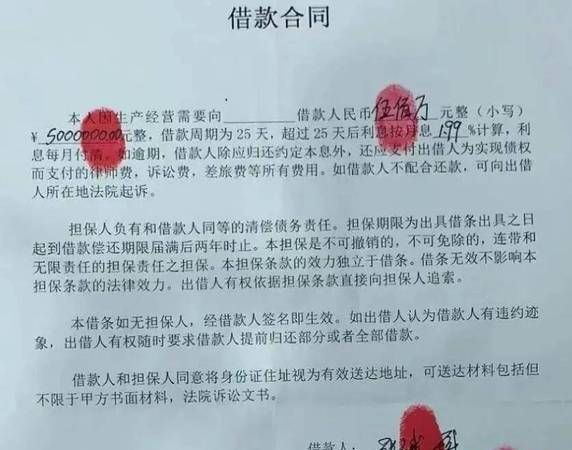 借款合同
本人因生产经营需要向 借款人民币伍佰万元整（小写）
¥ 5000000.00元整，借款周期为25天，超过25天后利息按月息1.99%计算，利
息每月付清。如逾期，借款人除应归还约定本息外，还应支付出借人为实现债权
而支付的律师费，诉讼费，差旅费等所有费用。如借款人不配合还款，可向出借
人所在地法院起诉。
担保人负有和借款人同等的清偿债务责任。担保期限为出具借条出具之日
起到借款偿还期限届满后两年时止。本担保是不可撤销的，不可免除的，连带和
无限责任的担保责任之担保。本担保条款的效力独立于借条。借条无效不影响本
担保条款的法律效力。出借人有权依据担保条款直接向担保人追索。
本借条如无担保人，经借款人签名即生效。如出借人认为借款人有违约迹
象，出借人有权随时要求借款人提前归还部分或者全部借款。
借款人和担保人同意将身份证住址视为有效送达地址，可送达材料包括但
不限于甲方书面材料，法院诉讼文书。
借款人：